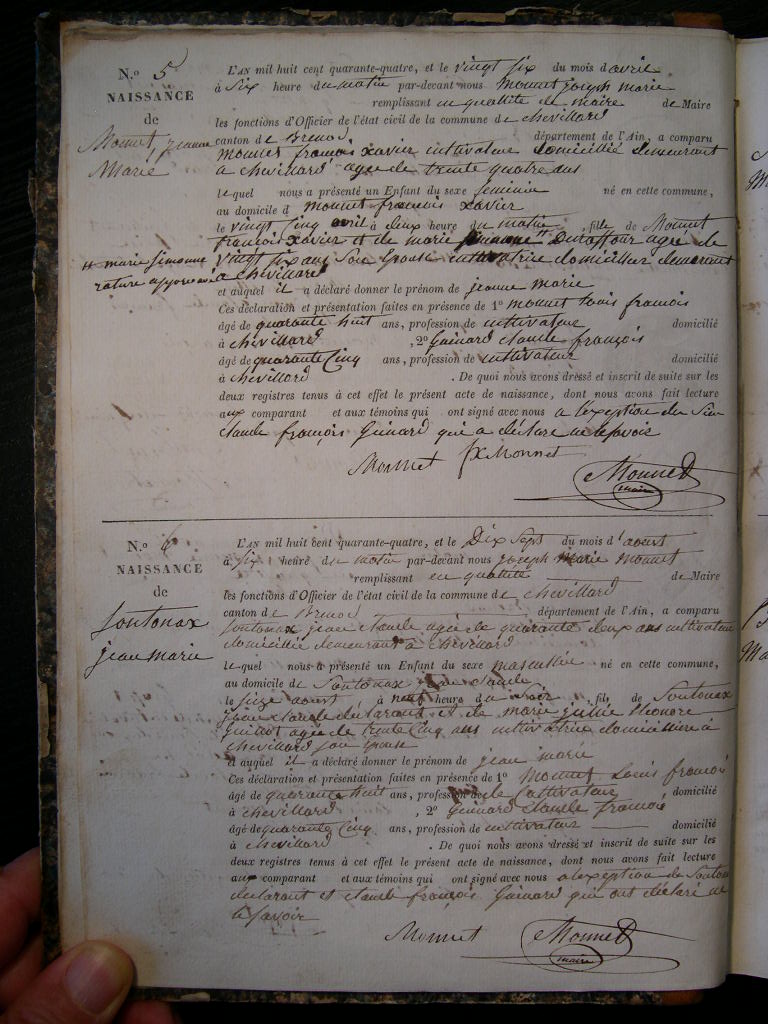 N.º 5
NAISSANCE
de
Monnet jeanne
Marie
L'AN mil huit cent quarante-quatre, et le vingt six du mois d'avril
à Six heure du matin par-devant nous Monnet joseph marie
remplissant en qualité de maire de Maire
les fonctions d'Officier de l'état civil de la commune de chevillard
canton de Brenod département de l'Ain, a comparu
monnet francois xavier cultivateur domicillié demeurant
a chevillard agé de trente quatre ans
lequel nous a présenté un Enfant du sexe feminin né en cette commune,
au domicile d monnet francois xavier
le vingt Cinq avril à deux heure du matin, fille de Monnet
francois xavier et de marie Duraffour agee de
# marie simonne
rature approuvé
vingt six ans son epouse cultivatrice domicilier demeurant
a chevillard
et auquel il a déclaré donner le prénom de jeanne marie
Ces déclaration et présentation faites en présence de 1º monnet louis francois
âgé de quarante huit ans, profession de cultivateur domicilié
à chevillard, 2º Guinard claude françois
âgé de quarante Cinq ans, profession de cultivateur domicilié
à chevillard. De quoi nous avons dressé et inscrit de suite sur les
deux registres tenus à cet effet le présent acte de naissance, dont nous avons fait lecture
aux comparant et aux témoins qui ont signé avec nous a l'exeption du Sieur
claude françois Guinard qui a déclare ne le savoir
Monnet fx Monnet
Monnet
maire
N.º 6
NAISSANCE
de
Sontonax
jean marie
L'AN mil huit cent quarante-quatre, et le Dix Sept du mois d'aout
à six heure du matin par-devant nous joseph Marie Monnet
remplissant en qualité de Maire
les fonctions d'Officier de l'état civil de la commune de chevillard
canton de Brenod département de l'Ain, a comparu
Sontonax jean claude agé de quarante deux ans cultivateur
domicilié demeurant a chevillard
lequel nous a présenté un Enfant du sexe masculin né en cette commune,
au domicile de Sontonax claude
le seize aout à neuf heure du soir, fils de Sontonax
jean claude déclarant et de marie julie Eleonore
agée de trente Cinq ans cultivatrice domiciliere à
chevillard son epouse
et auquel il a déclaré donner le prénom de jean marie
Ces déclaration et présentation faites en présence de 1º Monnet Louis francois
âgé de quarante huit ans, profession de Cultivateur, domicilié
à chevillard, 2º Guinard claude francois
âgé de quarante Cinq ans, profession de cultivateur domicilié
à chevillard. De quoi nous avons dressé et inscrit de suite sur les
deux registres tenus à cet effet le présent acte de naissance, dont nous avons fait lecture
aux comparant et aux témoins qui ont signé avec nous a l'exeption de Sontonax
declarant et claude françois Guinard qui ont déclaré ne
le savoir
Monnet
Monnet
maire